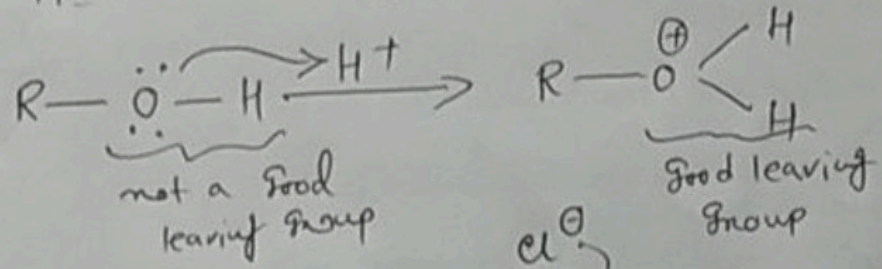 R — O — H → H+ → R — O ⊕ H
H
not a good
leaving group
good leaving
group
Cl⊖